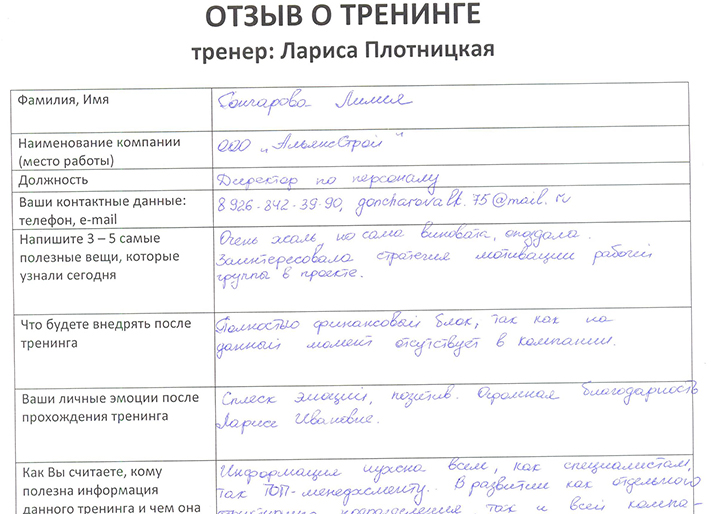 ОТЗЫВ О ТРЕНИНГЕ
тренер: Лариса Плотницкая
Фамилия, Имя
Гончарова Лилия
Наименование компании
(место работы)
ООО "АльянсСтрой"
Должность
Директор по персоналу
Ваши контактные данные:
телефон, e-mail
8 926-342-39-90, goncharovalk.75@mail.ru
Напишите 3 – 5 самые
полезные вещи, которые
узнали сегодня
Очень жаль, но сама виновата, опоздала.
Заинтересовала стратегия мотивации рабочей
группы в проекте.
Что будете внедрять после
тренинга
Полностью финансовый блок, так как на
данный момент отсутствует в компании.
Ваши личные эмоции после
прохождения тренинга
Сплеск эмоций, позитив. Огромная благодарность
Ларисе Ивановне.
Как Вы считаете, кому
полезна информация
данного тренинга и чем она
Информация нужна всем, как специалистам,
так ТОП-менеджменту. В развитии как отдельного
подразделения так и всей компа-